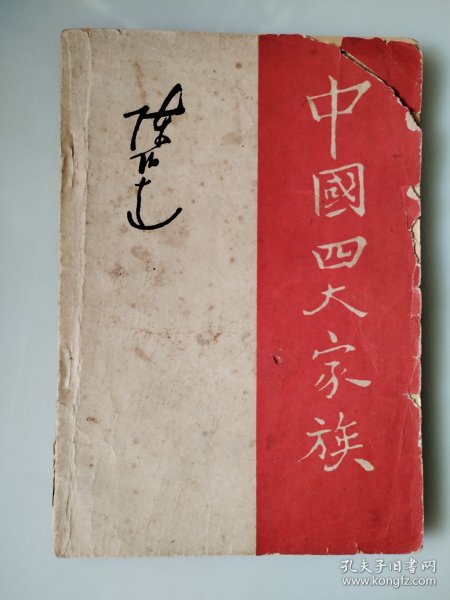 中國四大家族
陈伯达
孔夫子旧书网
www.kongfz.com